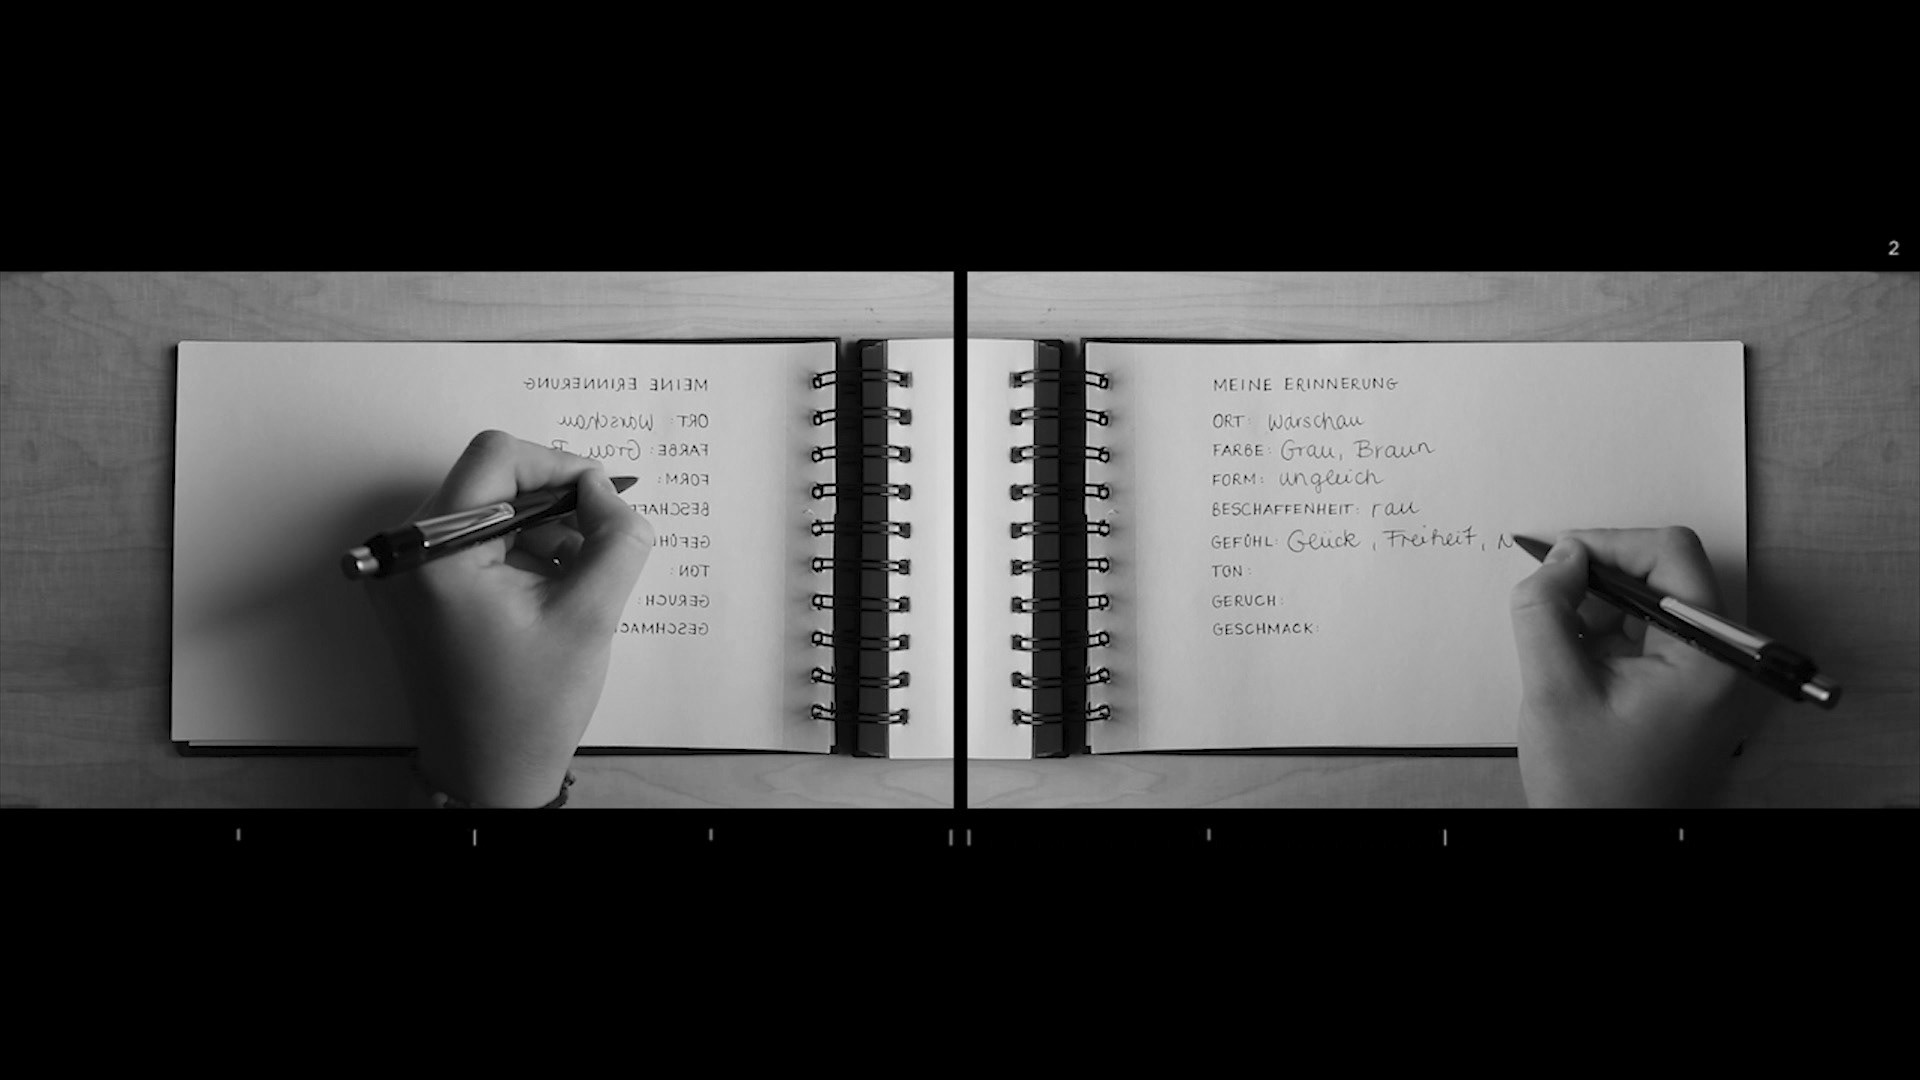 2
MEINE ERINNERUNG
ORT: Warschau
FARBE: Grau, B
FORM:
BESCHAFF
GEFÜHL
TON:
GERUCH:
GESCHMAC
MEINE ERINNERUNG
ORT: Warschau
FARBE: Grau, Braun
FORM: ungleich
BESCHAFFENHEIT: rau
GEFÜHL: Glück, Freiheit, N
TON:
GERUCH:
GESCHMACK: